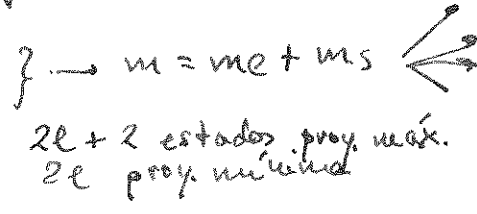 } → m = me + ms
2l + 2 estados proy. máx.
2l proy. mínima